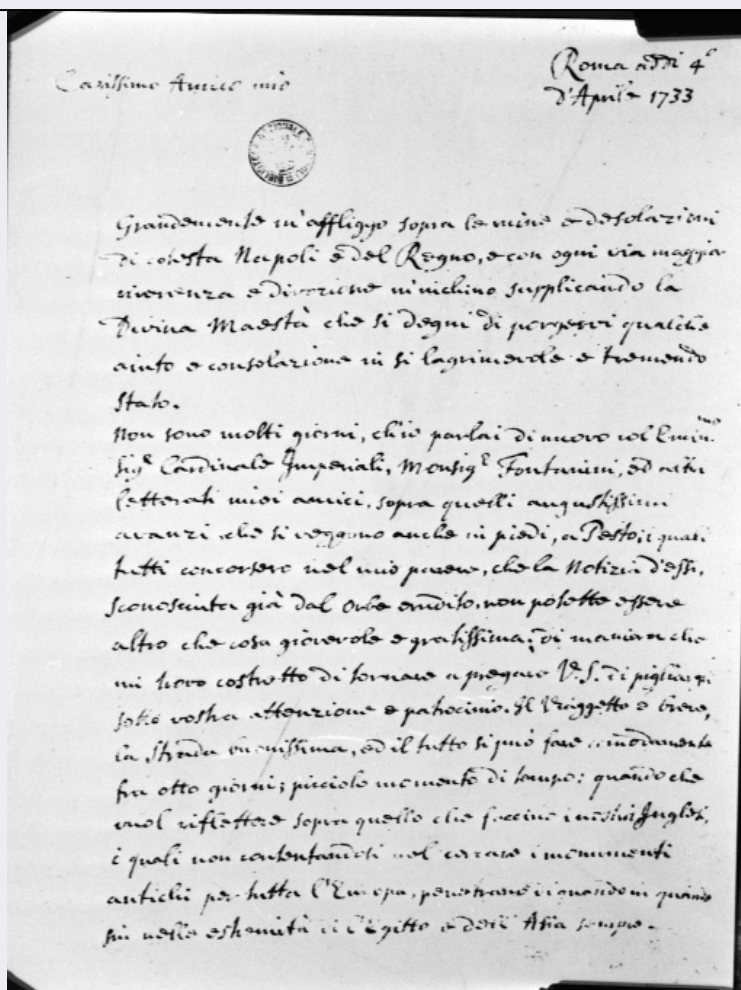 Carissimo Amico mio
Roma addi 4º
d'Aprile 1733
Grandemente m'affliggo sopra le ruine e desolazioni
di cotesta Napoli e del Regno, e con ogni via maggior
riverenza e divozione m'inchino supplicando la
Divina Maestà che si degni di porgervi qualche
aiuto e consolazione in si lagrimevole e tremendo
stato.
Non sono molti giorni, ch'io parlai di nuovo col Emin.mo
Sigr Cardinale Imperiali, Monsigr Fontanini, ed altri
letterati miei amici, sopra quelli augustissimi
avanzi che si veggono anche in piedi, a Pesto; i quali
tutti concorsero nel mio parere, che la Notizia d'essi,
sconosciuta già dal orbe erudito, non potette essere
altro che cosa giovevole e gratissima; di maniera che
mi trovo costretto di tornare a pregare V.S. di pigliargli
sotto vostra attenzione e patrocinio. Il Viaggetto è breve,
la strada buonissima, ed il tutto si può fare comodamente
fra otto giorni; picciolo momento di tempo: quando che
vuol riflettere sopra quello che faccino i nostri Inglesi,
i quali non contentandosi nel cercare i monumenti
antichi per tutta l'Europa, penetrano di quando in quando
sin nelle estremità di l'Egitto e dell' Asia sempre.